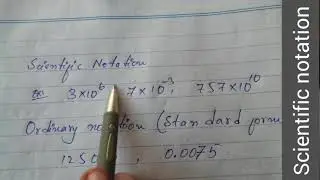 Scientific Notation
Ex: 3×10⁶, 7×10⁻³, 757×10¹⁰
Ordinary notation (Standard form
1250, 0.0075
Scientific notation